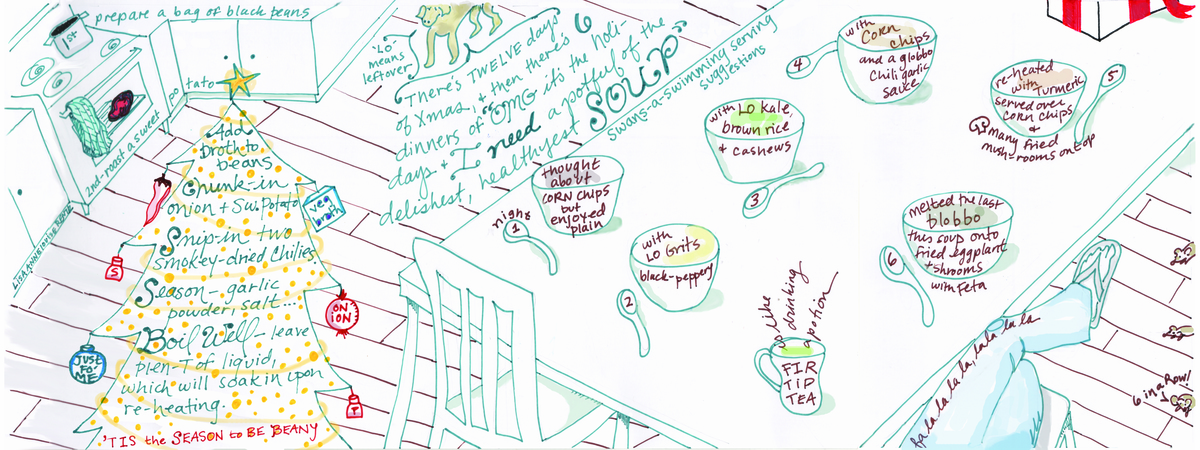 prepare a bag of black beans
1st
2nd-roast a sweet
tato
LiSA ANN
Add
broth to
beans
Chunk-in
onion + Sw. Potato
Snip-in two
smokey-dried Chilies
Season - garlic
powder, salt...
Boil Well - leave
plen-T of liquid,
which will soak in upon
re-heating.
'TIS the SEASON to BE BEANY
veg
broth
S
ON
iON
JUST
FO'
ME
T
'LO'
means
leftover
There's TWELVE days
of Xmas, + then there's 6
dinners of "OMG it's the holi-
days + I need a potful of the
delishest, healthyest SOUP"
swans-a-swimming serving
suggestions
night
1
thought
about
CORN CHIPS
but
enjoyed
plain
2
with
LO Grits
black-peppery
3
with LO kale,
brown rice
+ cashews
4
with
Corn
chips
and a globbo
Chili garlic
sauce
5
re-heated
with Turmeric
served over
corn chips
&
many fried
mush-rooms on top
6
melted the last
blobbo
this soup onto
fried eggplant
+ shrooms
with Feta
like
drinking
a potion
FIR
TIP
TEA
fa la la la la, la la la la
6 in a Row!